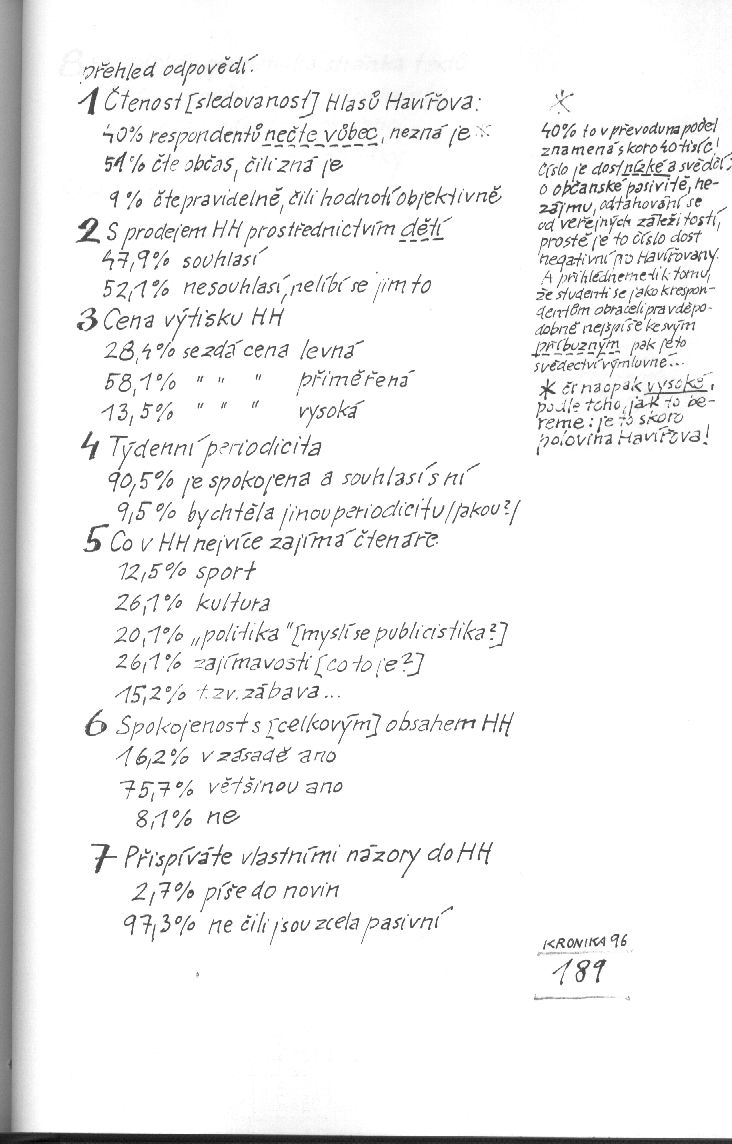 přehled odpovědí:
1 Čtenost [sledovanost] Hlasů Havířova:
40% respondentů nečte vůbec, nezná je *
51% čte občas, čili zná je
9% čte pravidelně, čili hodnotí objektivně
2 S prodejem HH prostřednictvím dětí
47,9% souhlasí
52,1% nesouhlasí, nelíbí se jim to
3 Cena výtisku HH
28,4% se zdá cena levná
58,1% " " " přiměřená
13,5% " " " vysoká
4 Týdenní periodicita
90,5% je spokojena a souhlasí s ní
9,5% by chtěla jinou periodicitu /jakou?/
5 Co v HH nejvíce zajímá čtenáře
12,5% sport
26,1% kultura
20,1% „politika" [myslí se publicistika?]
26,1% zajímavosti [co to je?]
15,2% t.zv. zábava...
6 Spokojenost s [celkovým] obsahem HH
16,2% v zásadě ano
75,7% většinou ano
8,1% ne
7 Přispíváte vlastními názory do HH
2,7% píše do novin
97,3% ne čili jsou zcela pasivní
*
40% to v převodu na počet
znamená skoro 40 tisíc!
Číslo je dost nízké a svědčí
o občanské pasivitě, ne-
zájmu, odtahování se
od veřejných záležitostí,
prostě je to číslo dost
negativní pro Havířovany.
A přihlédneme-li k tomu,
že studenti se jako k respon-
dentům obraceli pravděpo-
dobně nejspíše ke svým
příbuzným pak je to
svědectví výmluvné...
* či naopak vysoké,
podle toho, jak to be-
reme: je to skoro
polovina Havířova!
KRONIKA 96
189